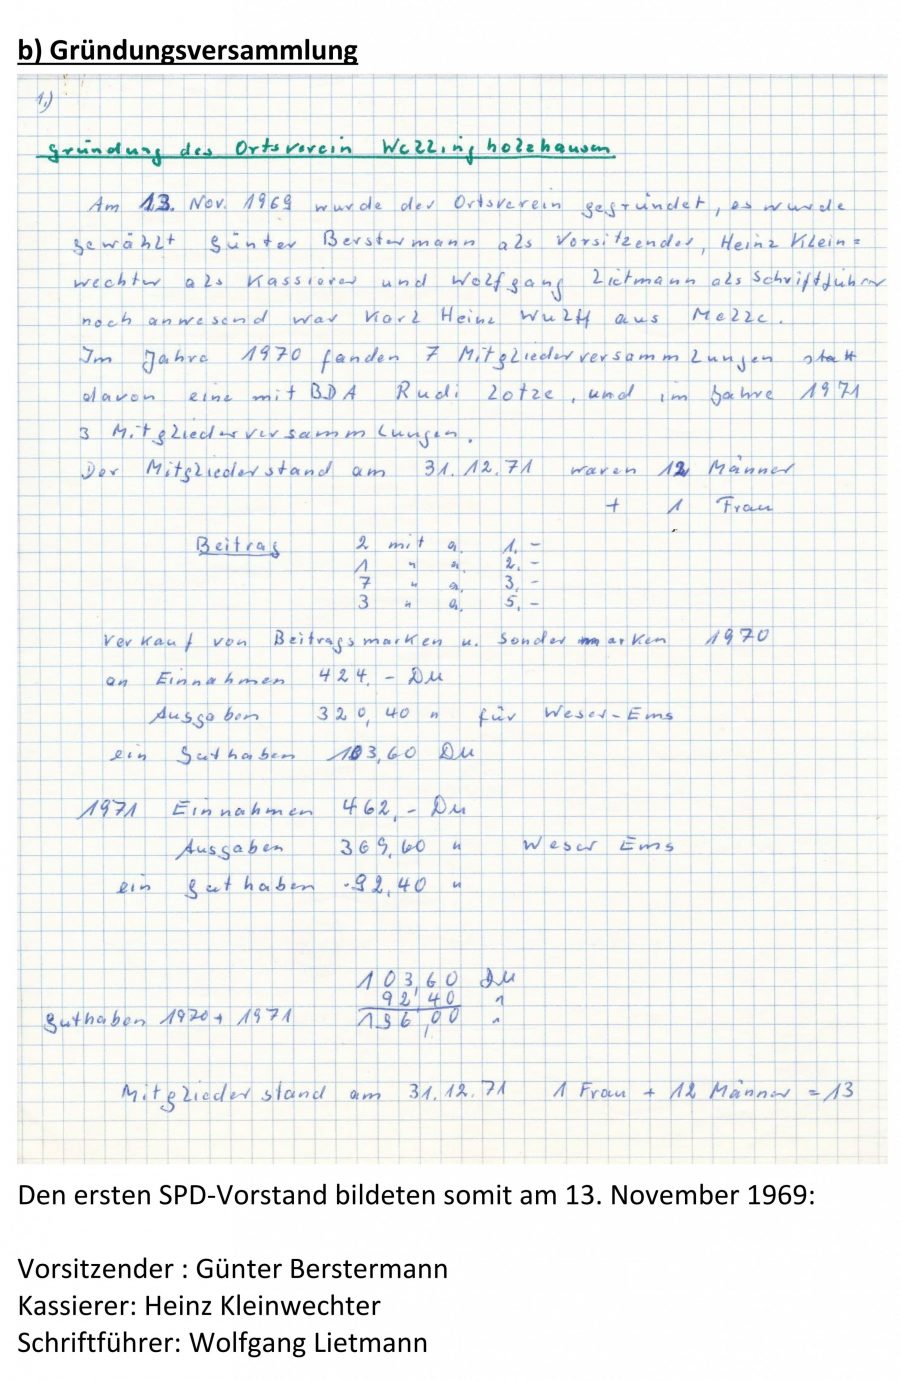 b) Gründungsversammlung
1.)
Gründung des Ortsverein Wellingholzhausen
Am 13. Nov. 1969 wurde der Ortsverein gegründet, es wurde
gewählt Günter Berstermann als Vorsitzender, Heinz Klein=
wechter als Kassierer und Wolfgang Lietmann als Schriftführer
noch anwesend war Karl Heinz Wulff aus Melle.
Im Jahre 1970 fanden 7 Mitgliederversammlungen statt
davon eine mit BDA Rudi Lotze, und im Jahre 1971
3 Mitgliederversammlungen.
Der Mitgliederstand am 31.12.71 waren 12 Männer
+ 1 Frau
Beitrag 2 mit a. 1,-
1 " a. 2,-
7 " a. 3,-
3 " a. 5,-
Verkauf von Beitragsmarken u. Sondermarken 1970
an Einnahmen 424,- DM
Ausgaben 320,40 " für Weser-Ems
ein Guthaben 103,60 DM
1971 Einnahmen 462,- DM
Ausgaben 369,60 " Weser Ems
ein Guthaben 92,40 "
103,60 DM
92,40 "
Guthaben 1970 + 1971 196,00 "
Mitgliederstand am 31.12.71 1 Frau + 12 Männer = 13
Den ersten SPD-Vorstand bildeten somit am 13. November 1969:
Vorsitzender : Günter Berstermann
Kassierer: Heinz Kleinwechter
Schriftführer: Wolfgang Lietmann